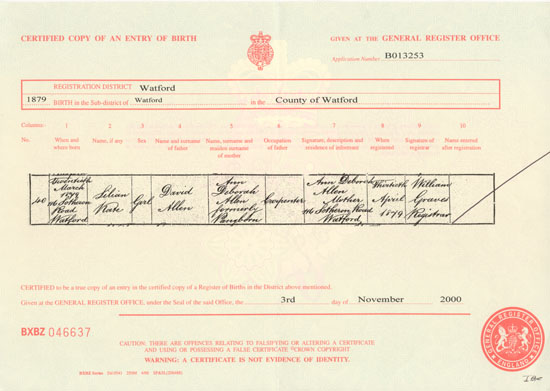 CERTIFIED COPY OF AN ENTRY OF BIRTH
GIVEN AT THE GENERAL REGISTER OFFICE
Application Number B013253
REGISTRATION DISTRICT Watford
1879 BIRTH in the Sub-district of Watford in the County of Watford
Columns:- 1 2 3 4 5 6 7 8 9 10
No. When and where born Name, if any Sex Name and surname of father Name, surname and maiden surname of mother Occupation of father Signature, description and residence of informant When registered Signature of registrar Name entered after registration
40 Twentieth March 1879 116 Sotheron Road Watford
Lilian Kate
Girl
David Allen
Ann Deborah Allen formerly Pangborn
Carpenter
Ann Deborah Allen Mother 116 Sotheron Road Watford
Thirtieth April 1879
William Graves Registrar
CERTIFIED to be a true copy of an entry in the certified copy of a Register of Births in the District above mentioned.
Given at the GENERAL REGISTER OFFICE, under the Seal of the said Office, the 3rd day of November 2000
BXBZ 046637
CAUTION: THERE ARE OFFENCES RELATING TO FALSIFYING OR ALTERING A CERTIFICATE
AND USING OR POSSESSING A FALSE CERTIFICATE ©CROWN COPYRIGHT
WARNING: A CERTIFICATE IS NOT EVIDENCE OF IDENTITY.
GENERAL REGISTER OFFICE
ENGLAND